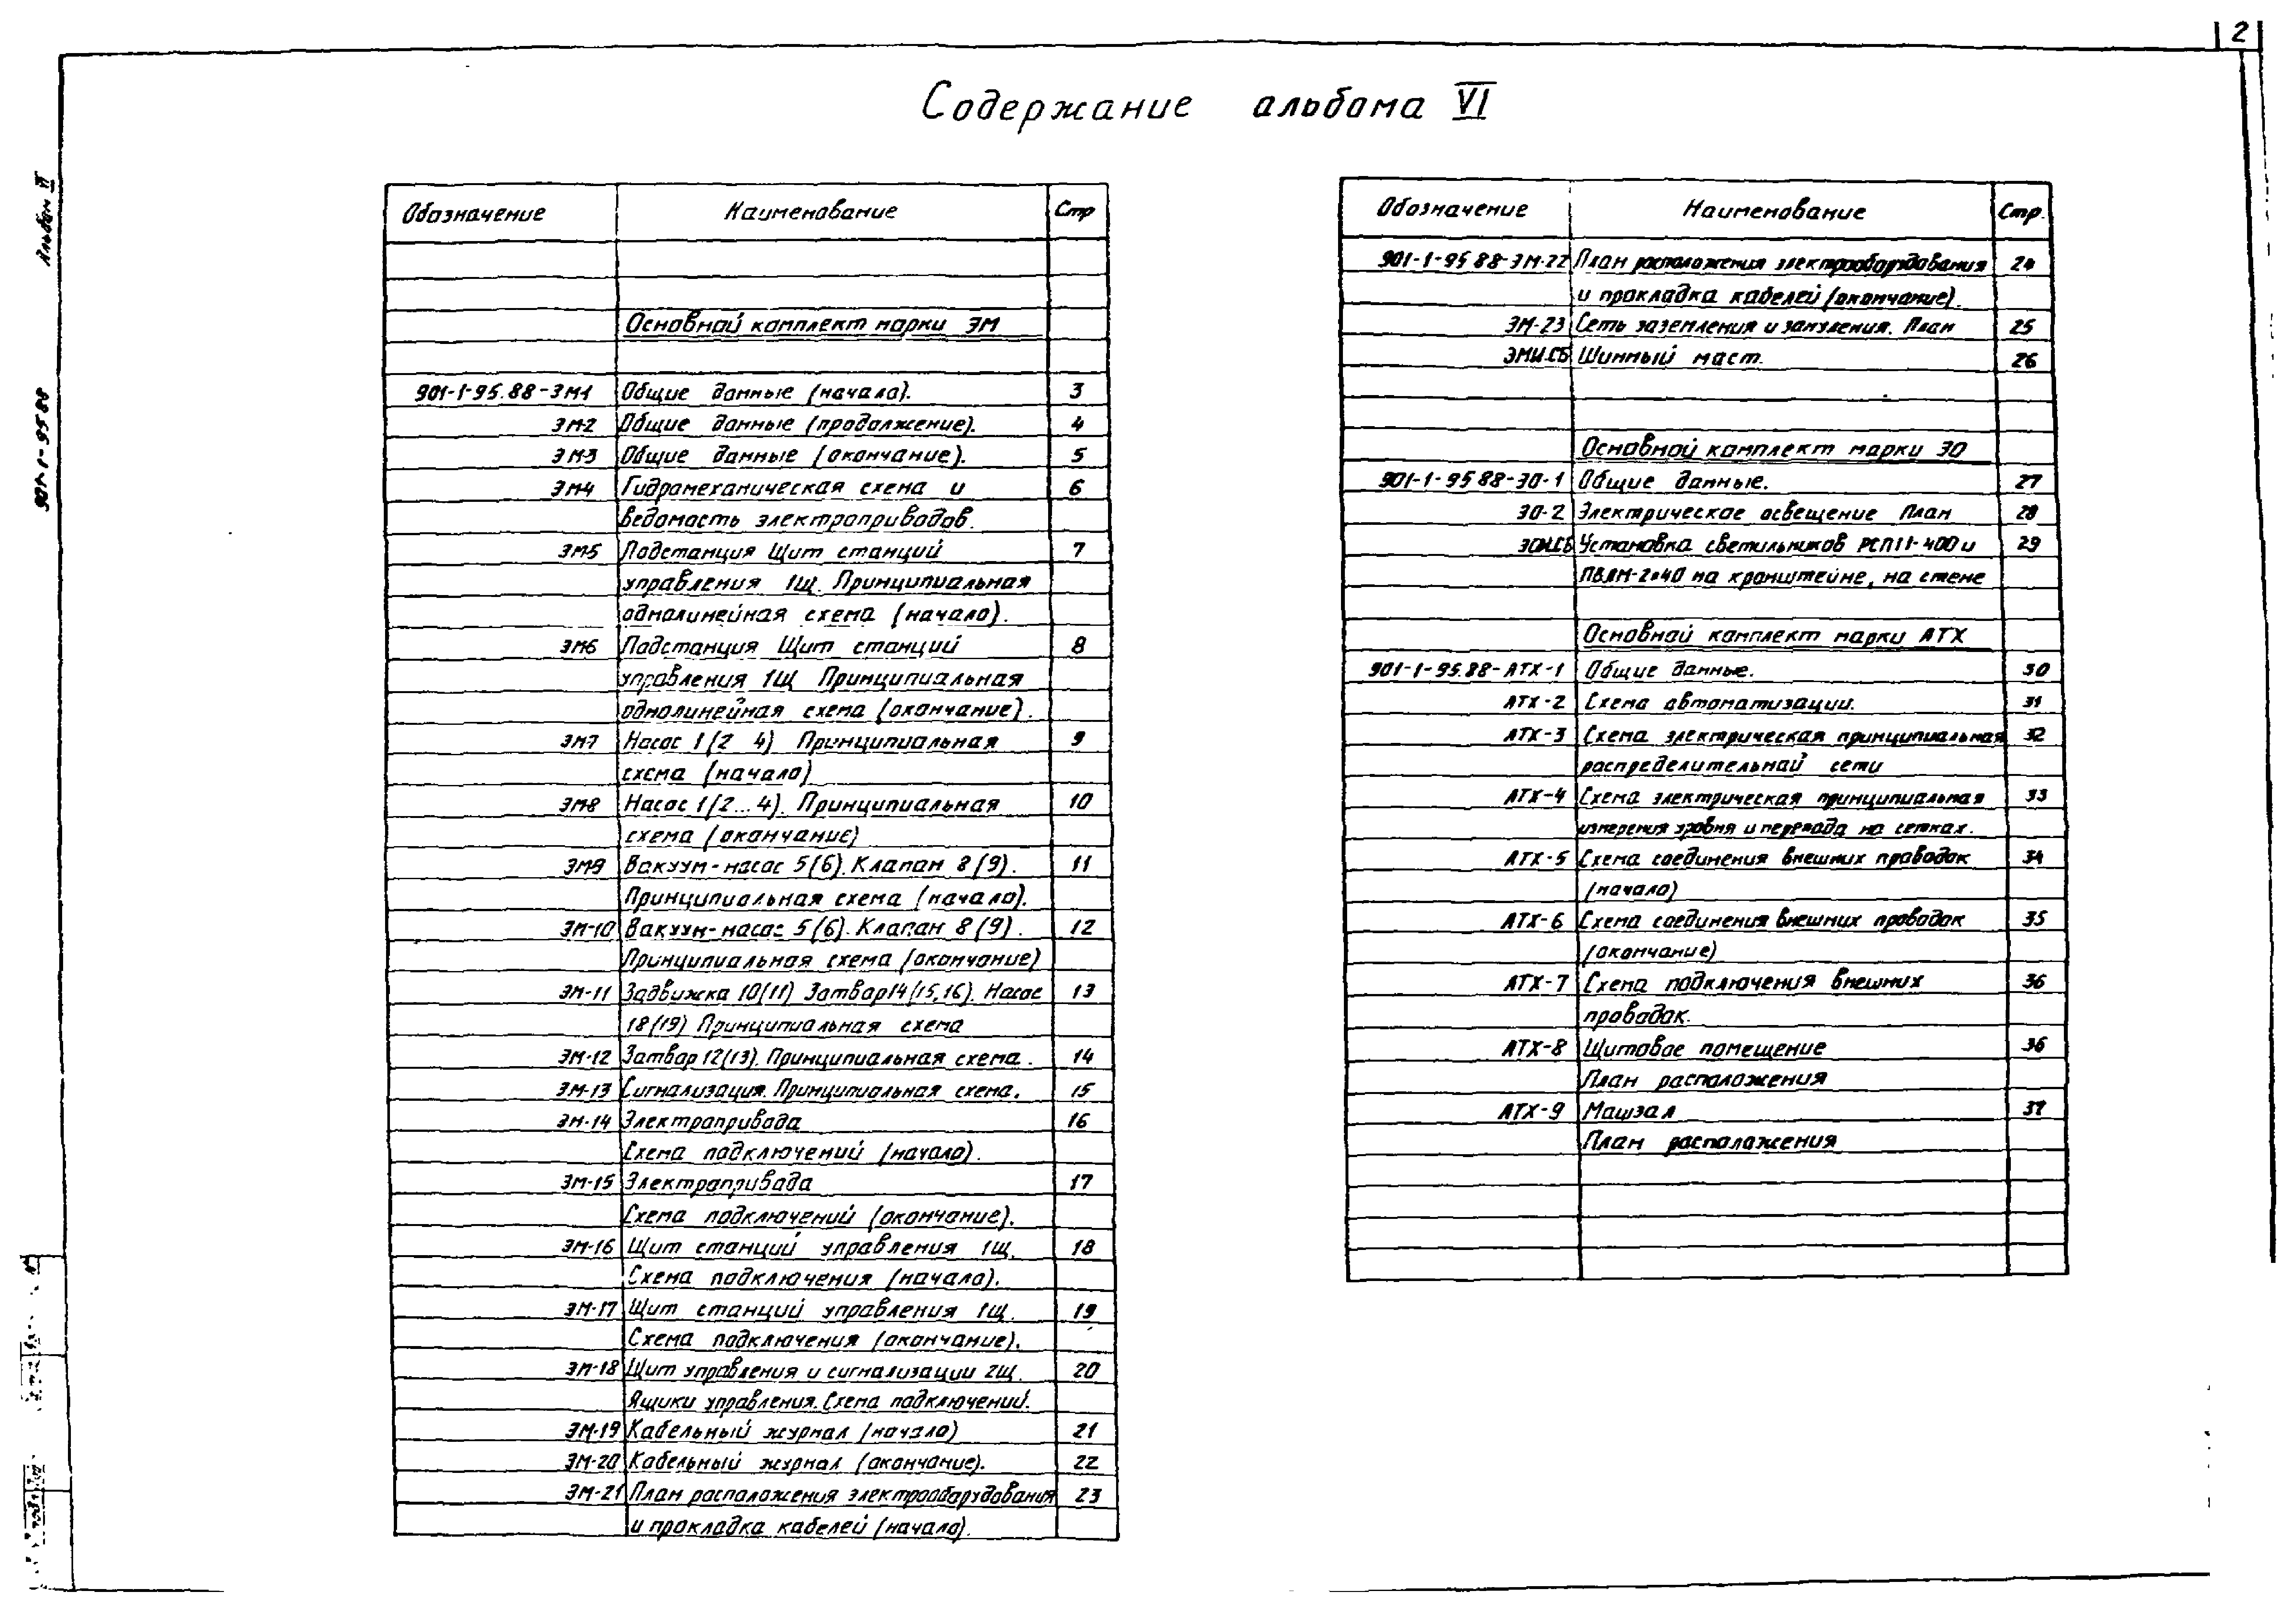 2
Содержание альбома VI
Альбом VI
901-1-95 88
Обозначение Наименование Стр
Основной комплект марки ЭМ
901-1-95.88-ЭМ1 Общие данные (начало). 3
ЭМ2 Общие данные (продолжение). 4
ЭМ3 Общие данные (окончание). 5
ЭМ4 Гидромеханическая схема и 6
ведомость электроприводов.
ЭМ5 Подстанция Щит станций 7
управления 1Щ. Принципиальная
однолинейная схема (начало).
ЭМ6 Подстанция Щит станций 8
управления 1Щ Принципиальная
однолинейная схема (окончание).
ЭМ7 Насос 1(2 4) Принципиальная 9
схема (начало)
ЭМ8 Насос 1(2...4). Принципиальная 10
схема (окончание)
ЭМ9 Вакуум-насос 5(6). Клапан 8(9). 11
Принципиальная схема (начало).
ЭМ-10 Вакуум-насос 5(6). Клапан 8(9). 12
Принципиальная схема (окончание)
ЭМ-11 Задвижка 10(11) Затвор14(15,16). Насос 13
18(19) Принципиальная схема
ЭМ-12 Затвор 12(13). Принципиальная схема. 14
ЭМ-13 Сигнализация. Принципиальная схема. 15
ЭМ-14 Электропривода 16
Схема подключений (начало).
ЭМ-15 Электропривода 17
Схема подключений (окончание).
ЭМ-16 Щит станций управления 1Щ. 18
Схема подключения (начало).
ЭМ-17 Щит станций управления 1Щ. 19
Схема подключения (окончание).
ЭМ-18 Щит управления и сигнализации 2Щ. 20
Ящики управления. Схема подключений.
ЭМ-19 Кабельный журнал (начало) 21
ЭМ-20 Кабельный журнал (окончание). 22
ЭМ-21 План расположения электрооборудования 23
и прокладка кабелей (начало).
Обозначение Наименование Стр.
901-1-95 88-ЭМ-22 План расположения электрооборудования 24
и прокладка кабелей (окончание).
ЭМ-23 Сеть заземления и зануления. План 25
ЭМИ.СБ Шинный мост. 26
Основной комплект марки ЭО
901-1-95 88-ЭО-1 Общие данные. 27
ЭО-2 Электрическое освещение План 28
ЭОИ.СБ Установка светильников РСП11-400 и 29
ПВЛМ-2×40 на кронштейне, на стене
Основной комплект марки АТХ
901-1-95.88-АТХ-1 Общие данные. 30
АТХ-2 Схема автоматизации. 31
АТХ-3 Схема электрическая принципиальная 32
распределительной сети
АТХ-4 Схема электрическая принципиальная 33
измерения уровня и перепада на сетках.
АТХ-5 Схема соединения внешних проводок 34
(начало)
АТХ-6 Схема соединения внешних проводок 35
(окончание)
АТХ-7 Схема подключения внешних 36
проводок.
АТХ-8 Щитовое помещение 36
План расположения
АТХ-9 Машзал 37
План расположения